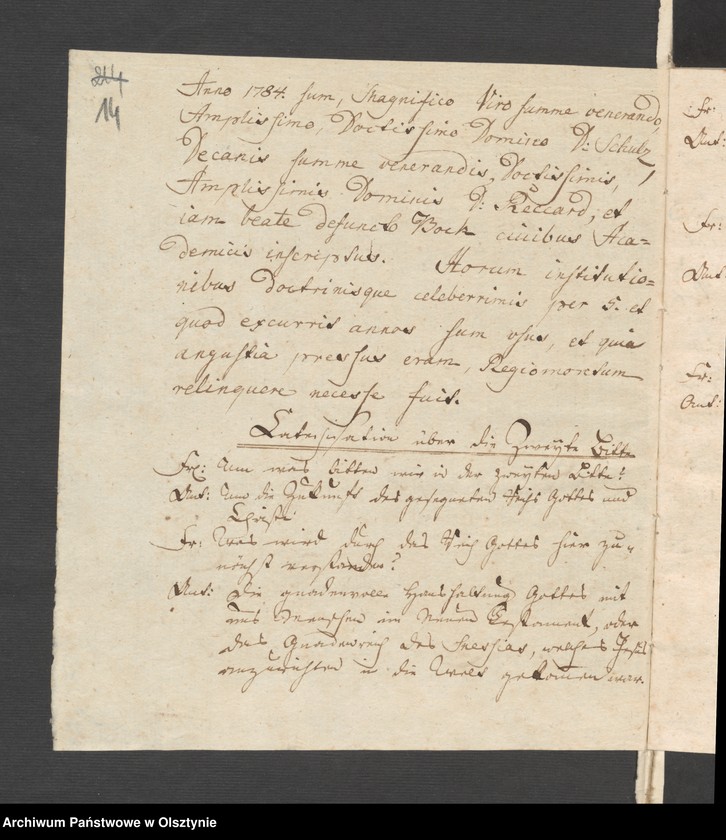 214
14
Anno 1784. sum, Magnifico Viro summe venerando,
Amplissimo, Doctissimo Domino D: Schulz,
Decanis summe venerandis, Doctissimis,
Amplissimis Dominis D: Reccard, et
iam beate defuncto Bock civibus Aca=
demicis inscriptus. Horum institutio=
nibus doctrinisque celeberrimis per 5. et
quod excurrit annos sum usus, et quia
angustia pressus eram, Regiomontum
relinquere necesse fuit.
Catechisation über die Zweyte Bitte
Fr: Um was bitten wir in der zweyten Bitte?
Ant: Um die Zukunft des gesegneten Reichs Gottes und
Christi
Fr: Was wird durch das Reich Gottes hier zu-
nächst verstanden?
Ant: Die gnadenvolle Haushaltung Gottes mit
uns Menschen im Neuen Testament, oder
das Gnadenreich des Messias, welches Jesus
anzurichten in die Welt gekommen war.
Fr:
Ant:
Fr:
Ant:
Fr:
Ant:
Archiwum Państwowe w Olsztynie